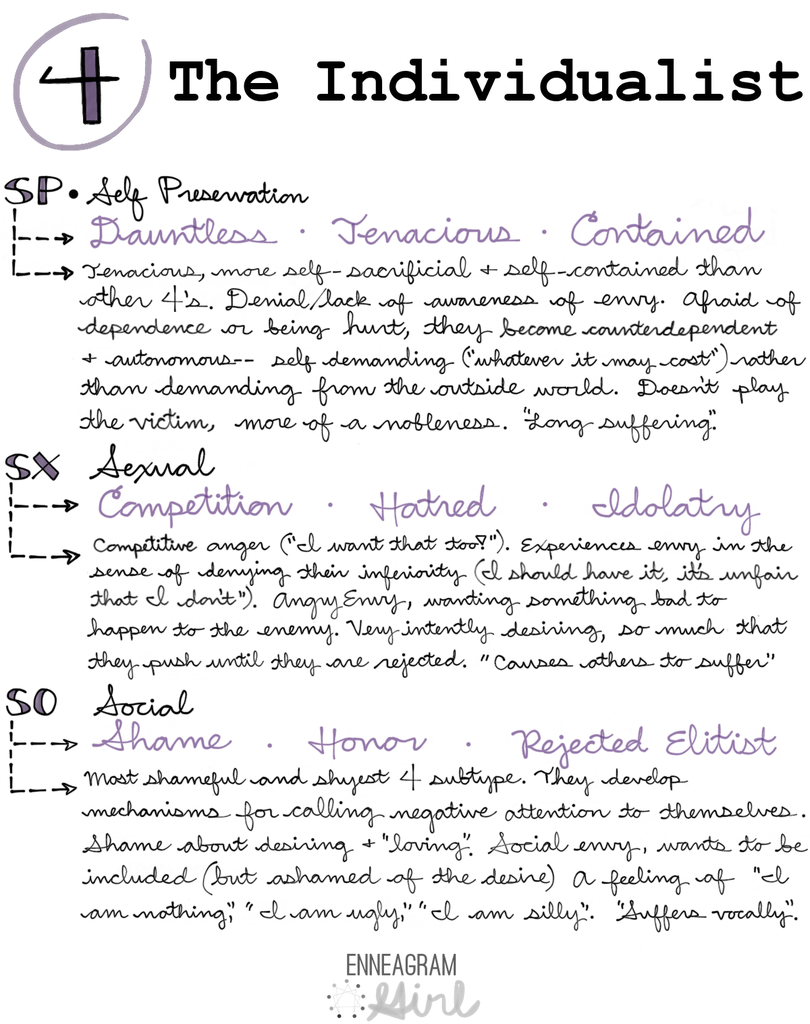 4 The Individualist
SP • Self Preservation
Dauntless · Tenacious · Contained
Tenacious, more self-sacrificial + self-contained than
other 4's. Denial/lack of awareness of envy. Afraid of
dependence or being hurt, they become counterdependent
+ autonomous-- self demanding ("whatever it may cost") rather
than demanding from the outside world. Doesn't play
the victim, more of a nobleness. "Long suffering".
SX Sexual
Competition · Hatred · Idolatry
Competitive anger ("I want that too!"). Experiences envy in the
sense of denying their inferiority (I should have it, it's unfair
that I don't"). Angry Envy, wanting something bad to
happen to the enemy. Very intently desiring, so much that
they push until they are rejected. "Causes others to suffer"
SO Social
Shame · Honor · Rejected Elitist
Most shameful and shyest 4 subtype. They develop
mechanisms for calling negative attention to themselves.
Shame about desiring + "loving". Social envy, wants to be
included (but ashamed of the desire) A feeling of "I
am nothing," "I am ugly," "I am silly". "Suffers vocally".
ENNEAGRAM
Girl